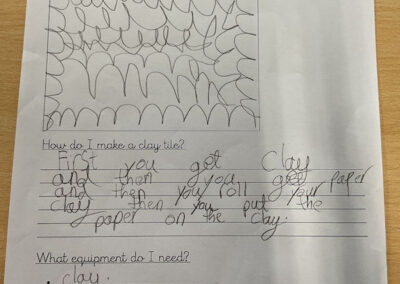 How do I make a clay tile?
First you get Clay
and then you get your paper
and then you roll
clay then you put the
paper on the clay.
What equipment do I need?
• clay.